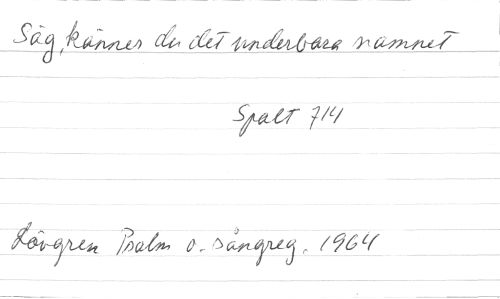 Säg, känner du det underbara namnet
Spalt 714
Lövgren Psalm o. sångreg. 1964